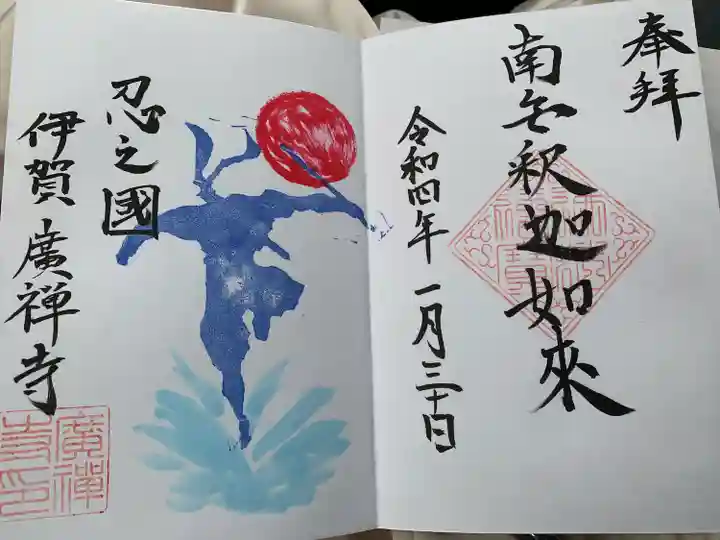 奉拝
南無釈迦如來
令和四年一月三十日
忍之國
伊賀廣禅寺
廣禪寺印